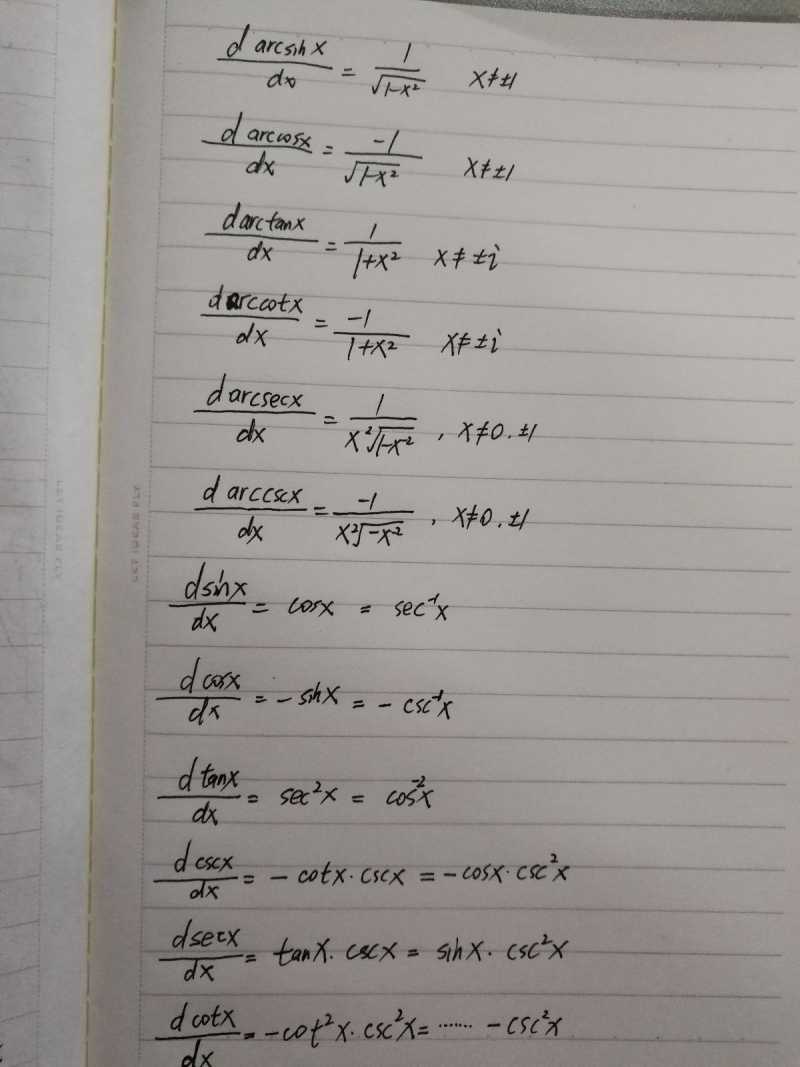 d arcsinx/dx = 1/√(1-x²) x≠±1
d arccosx/dx = -1/√(1-x²) x≠±1
d arctanx/dx = 1/(1+x²) x≠±i
d arccotx/dx = -1/(1+x²) x≠±i
d arcsecx/dx = 1/(x²√(1-x⁻²)), x≠0, ±1
d arccscx/dx = -1/(x²√(-x⁻²)), x≠0, ±1
dsinx/dx = cosx = sec⁻¹x
dcosx/dx = -sinx = -csc⁻¹x
dtanx/dx = sec²x = cos⁻²x
dcscx/dx = -cotx·cscx = -cosx·csc²x
dsecx/dx = tanx·cscx = sinx·csc²x
dcotx/dx = -cot²x·csc²x = ······ -csc²x